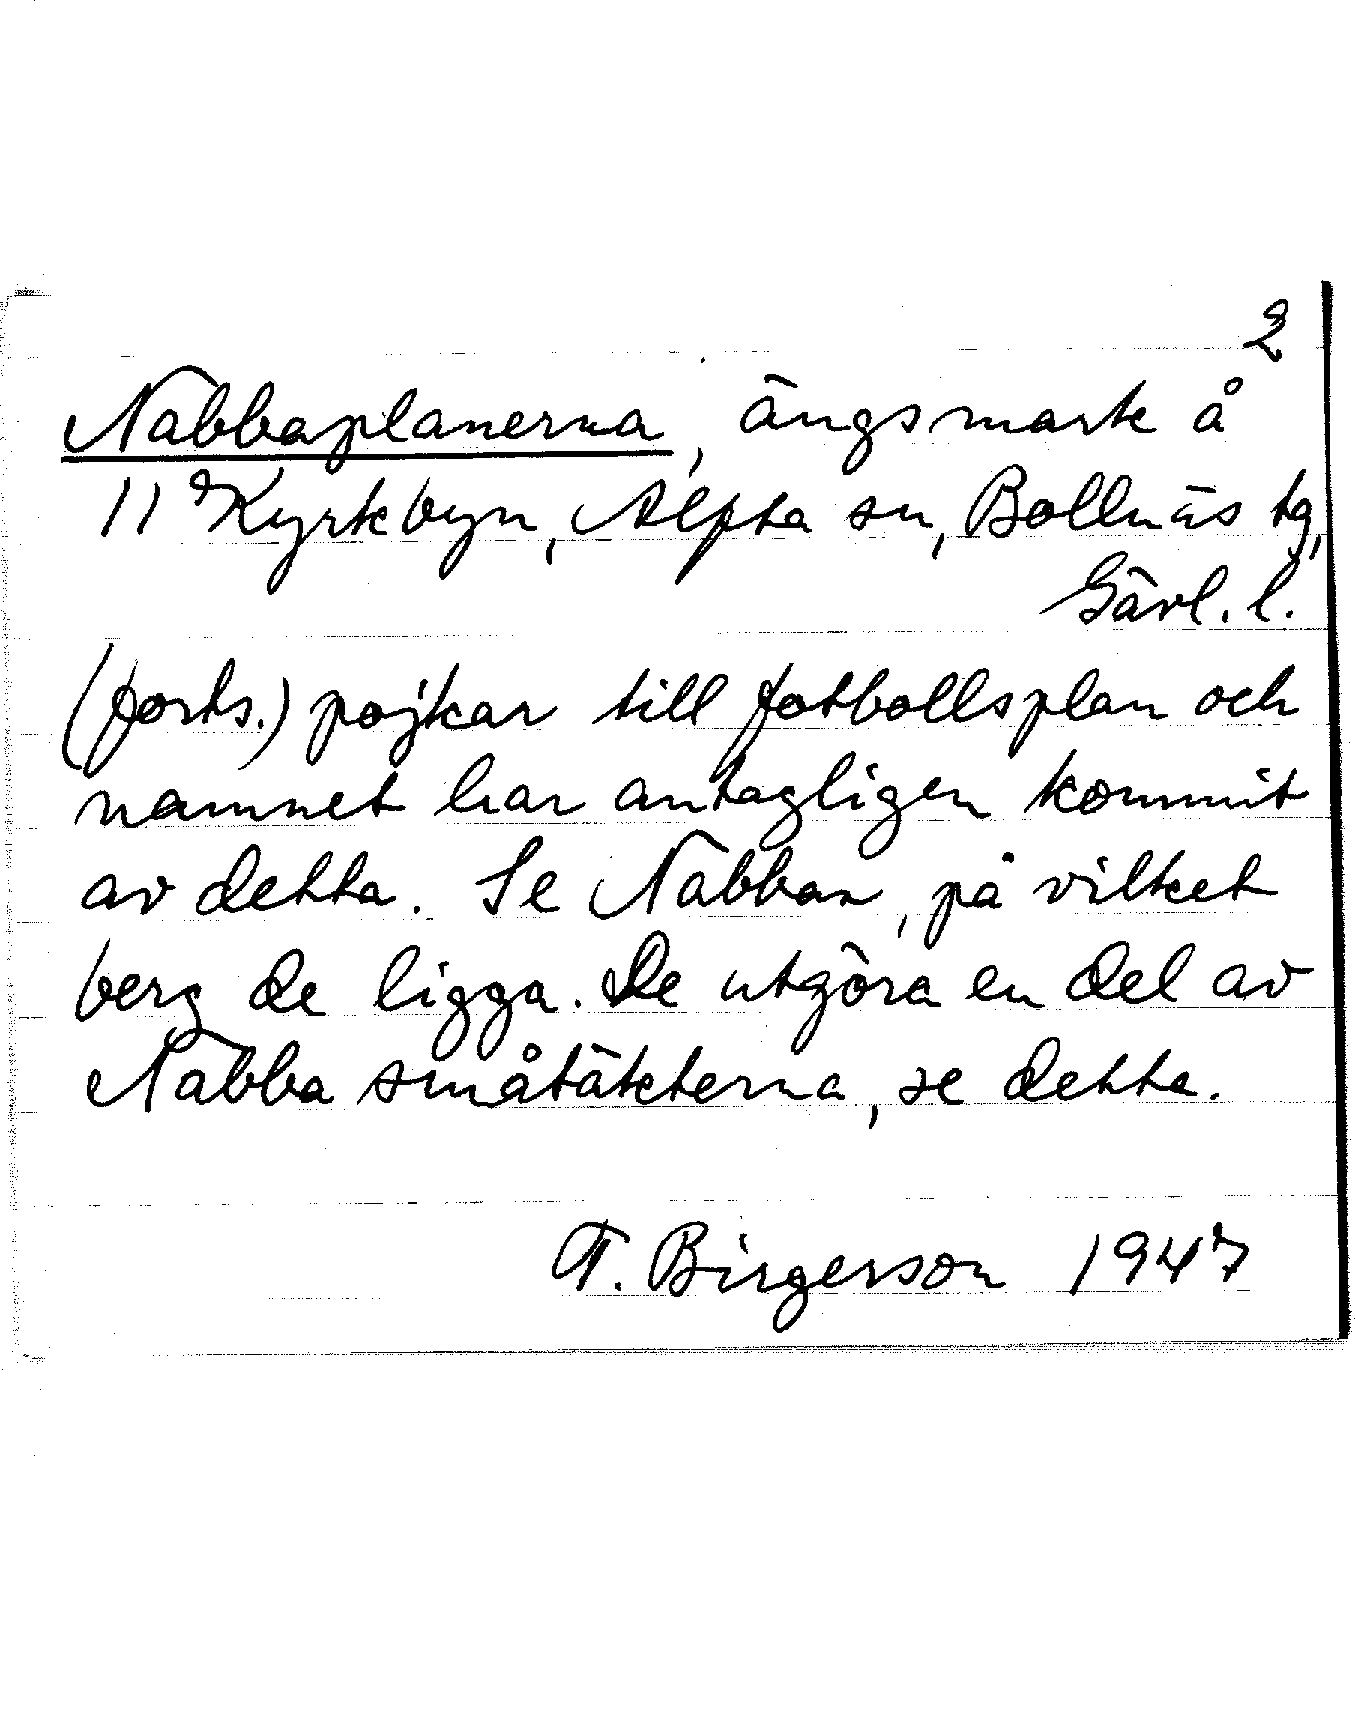 2
Nabbaplanerna, ängsmark å
11 Kyrkbyn, Alfta sn, Bollnäs tg,
Gävl. l.
(forts.) pojkar till fotbollsplan och
namnet har antagligen kommit
av detta. Se Nabban, på vilket
berg de ligga. De utgöra en del av
Nabba småtäkterna, se detta.
T. Birgerson 1947